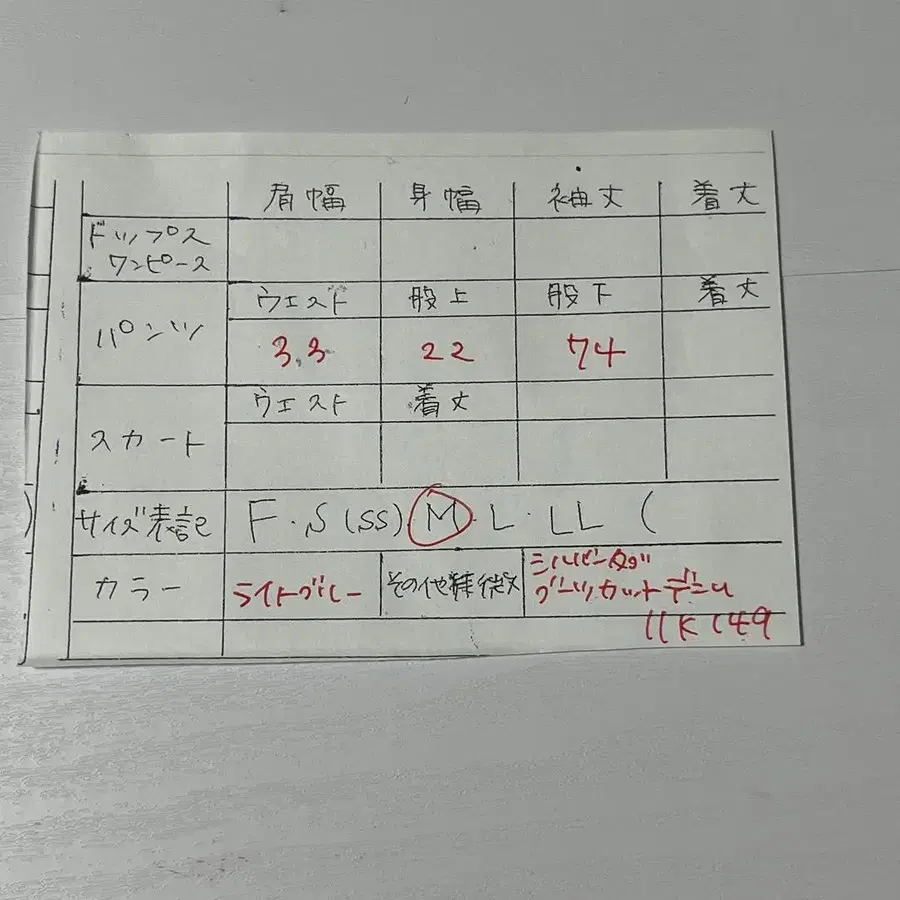 肩幅 身幅 袖丈 着丈
トップス
ワンピース
ウエスト 股上 股下 着丈
パンツ
33 22 74
ウエスト 着丈
スカート
サイズ表記 F・S(SS)・M・L・LL (
カラー ライトブルー その他特徴 シルバータグ
ブーツカットデニム
11K149